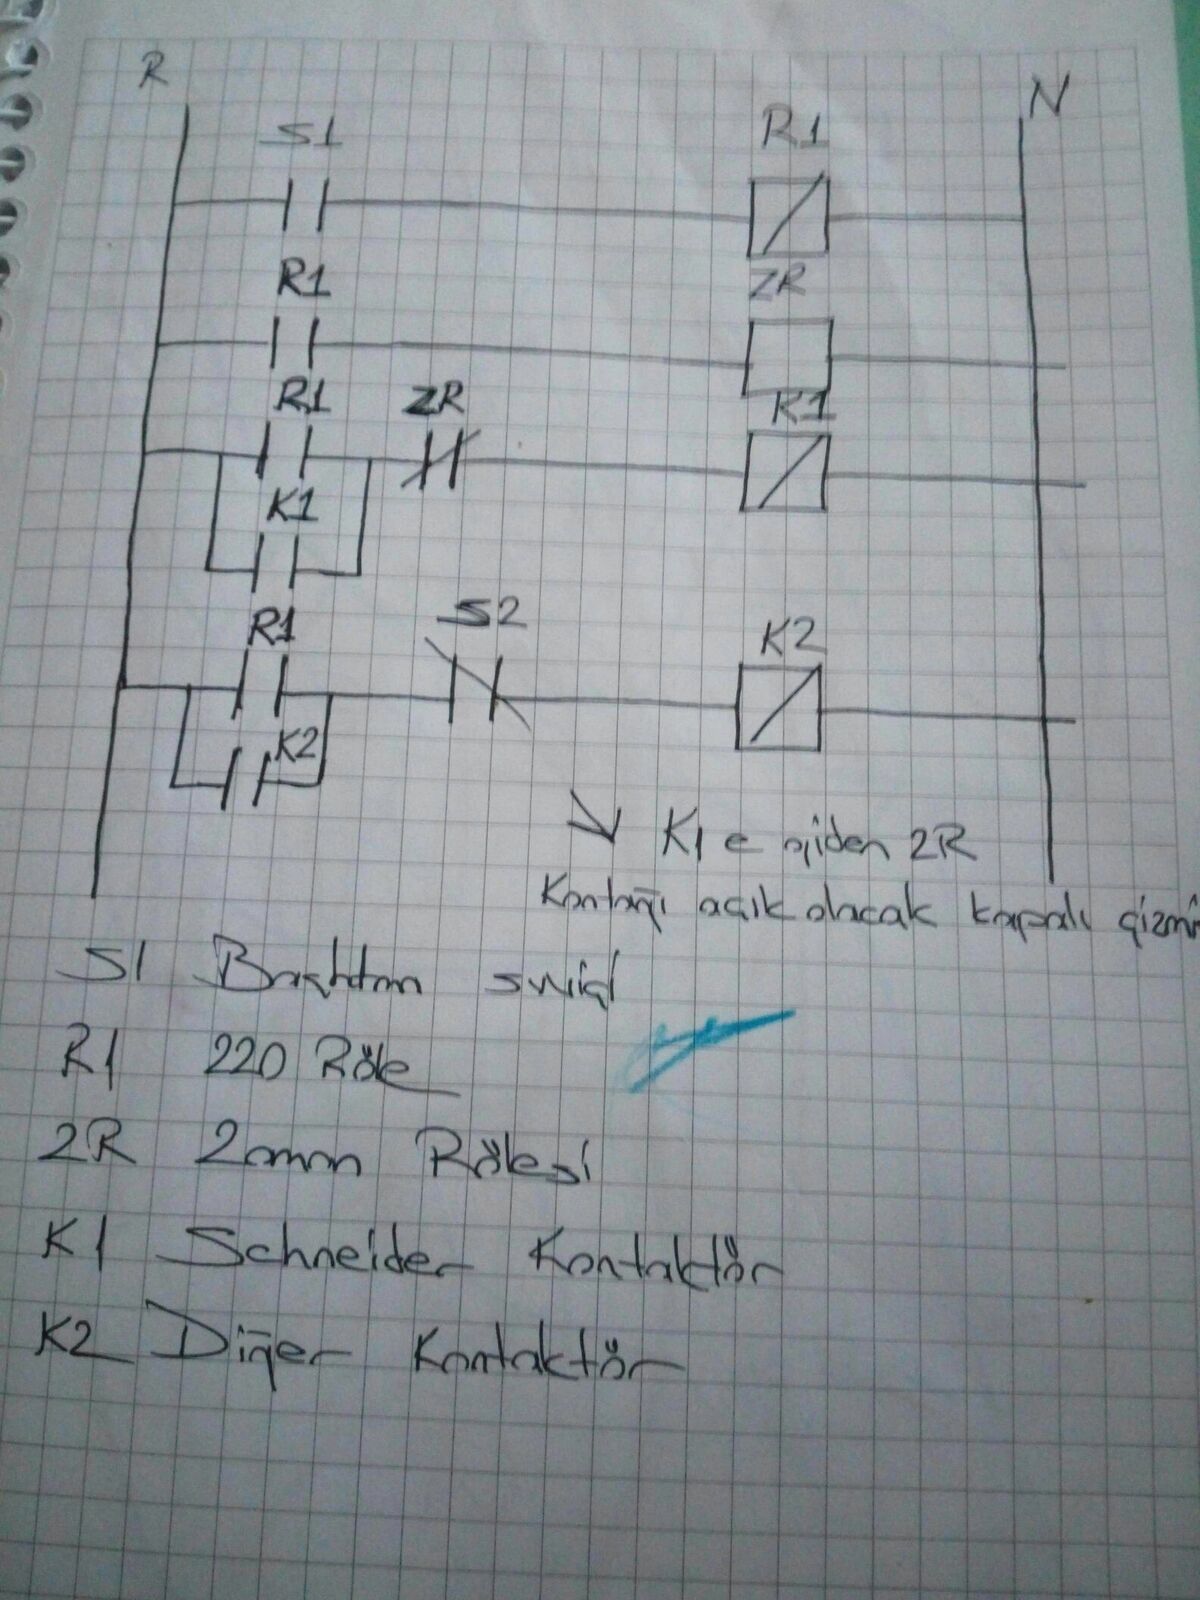 R N
S1 R1
R1 ZR
R1 ZR K1
K1
R1 S2 K2
K2
K1 e giden ZR
Kontağı açık olacak kapalı çizmi
S1 Basktan
R1 220 Röle
ZR Zaman Rölesi
K1 Schneider Kontaktör
K2 Diğer Kontaktör